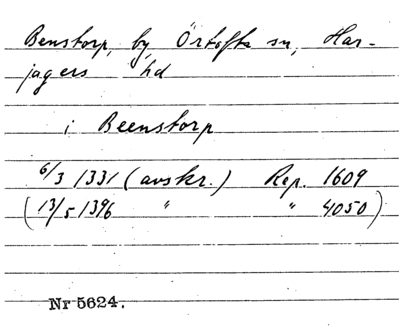 Benstorp, by, Örtofta sn, Har-
jagers hd
i Beenstorp
6/3 1331 (avskr.) Rep. 1609
(13/5 1396 " " 4050)
Nr 5624.